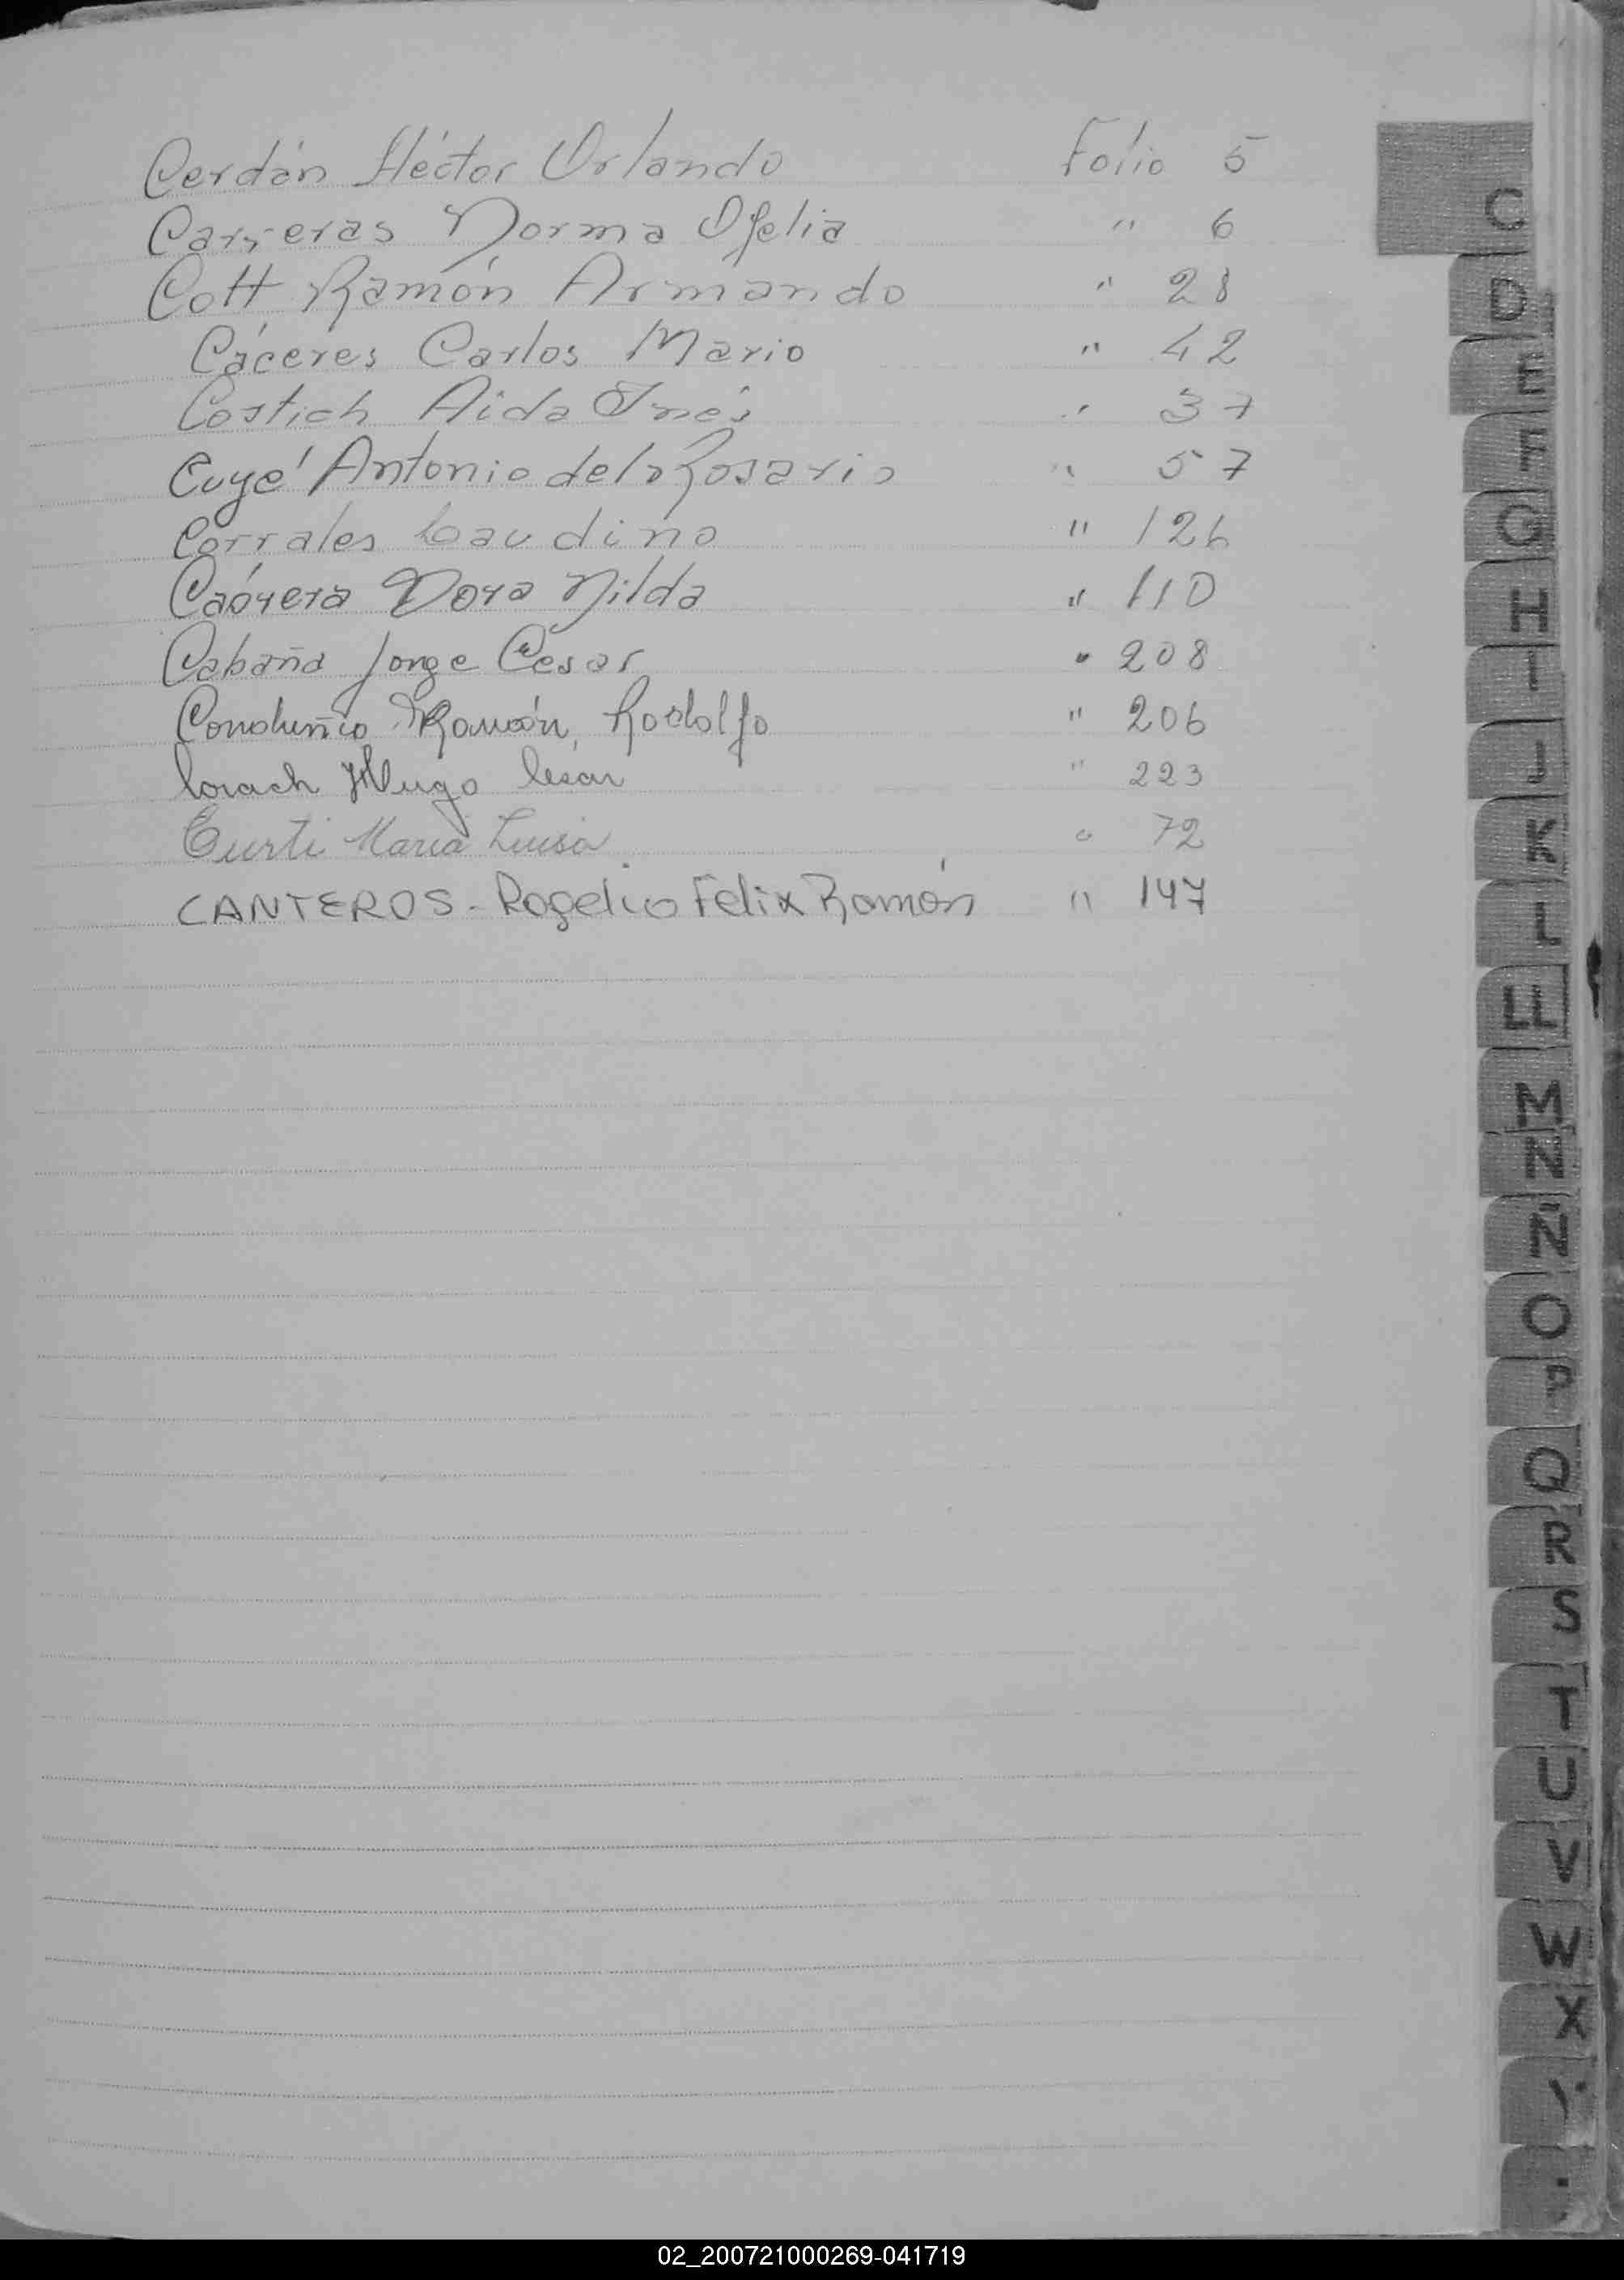 Cerdán Héctor Orlando Folio 5
Carreras Norma Ofelia " 6
Cott Ramón Armando " 28
Cáceres Carlos Mario " 42
Costich Aida Inés " 37
Cuyé Antonio del Rosario " 57
Corrales Laudino " 126
Cabrera Dora Nilda " 110
Cabaña Jorge César " 208
Ramón, Rodolfo " 206
Corach Hugo Cesar " 223
Curti Maria Luisa " 72
CANTEROS - Rogelio Felix Ramón " 147
C
D
E
F
G
H
I
J
K
L
LL
M
N
Ñ
O
P
Q
R
S
T
U
V
W
X
Y
02_200721000269-041719